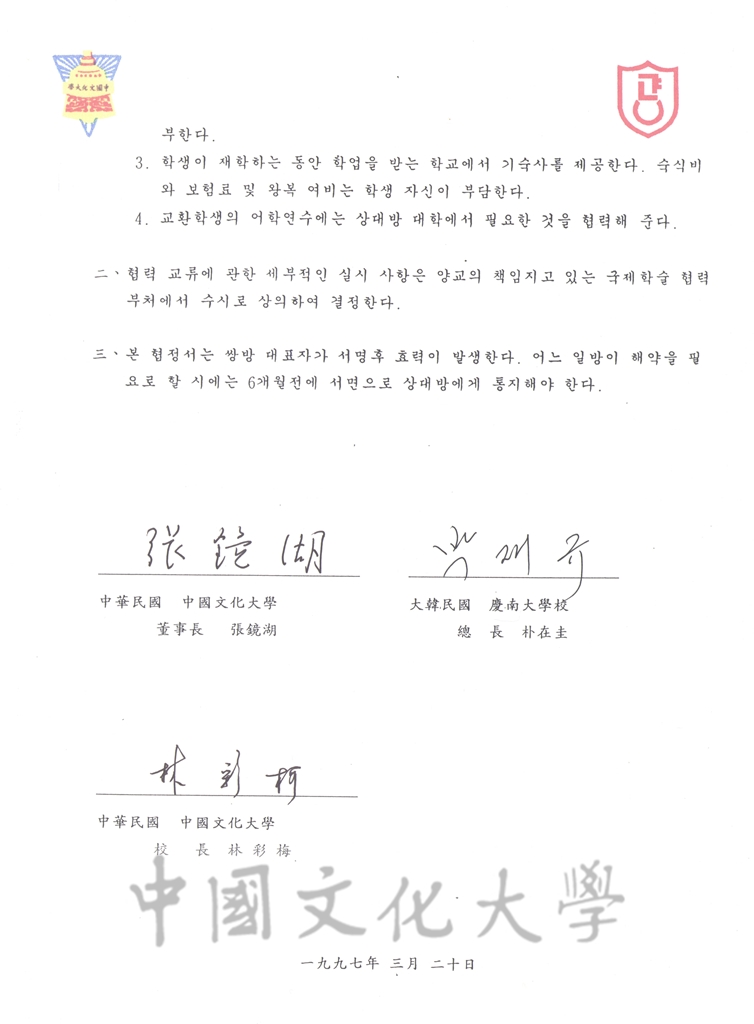 中國文化大學
부한다.
3. 학생이 재학하는 동안 학업을 받는 학교에서 기숙사를 제공한다. 숙식비
와 보험료 및 왕복 여비는 학생 자신이 부담한다.
4. 교환학생의 어학연수에는 상대방 대학에서 필요한 것을 협력해 준다.
二、협력 교류에 관한 세부적인 실시 사항은 양교의 책임지고 있는 국제학술 협력
부처에서 수시로 상의하여 결정한다.
三、본 협정서는 쌍방 대표자가 서명후 효력이 발생한다. 어느 일방이 해약을 필
요로 할 시에는 6개월전에 서면으로 상대방에게 통지해야 한다.
張鏡湖
朴在圭
中華民國 中國文化大學
董事長 張鏡湖
大韓民國 慶南大學校
總 長 朴在圭
林彩梅
中華民國 中國文化大學
校 長 林彩梅
中國文化大學
一九九七年 三月 二十日